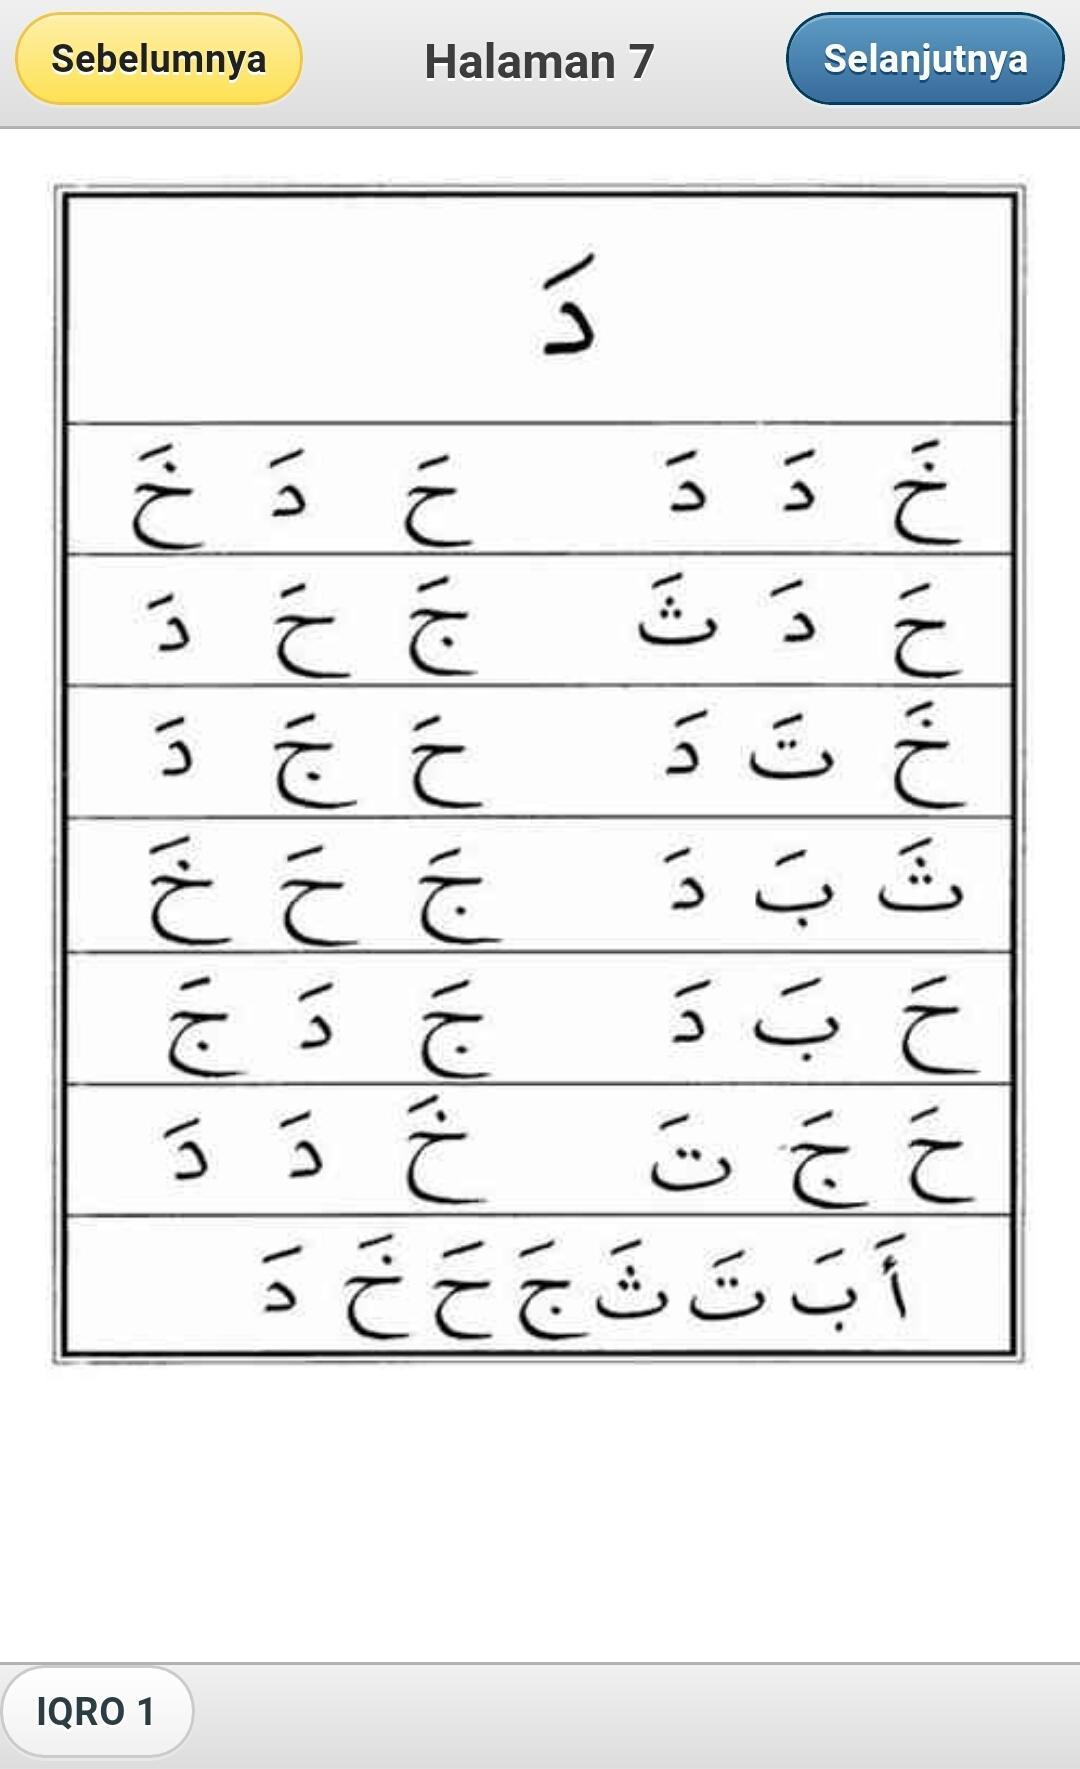 Sebelumnya Halaman 7 Selanjutnya
دَ
خَ دَ دَ حَ دَ خَ
حَ دَ ثَ جَ حَ دَ
خَ تَ دَ حَ جَ دَ
ثَ بَ دَ جَ حَ خَ
حَ بَ دَ جَ دَ جَ
حَ جَ تَ خَ دَ دَ
أَ بَ تَ ثَ جَ حَ خَ دَ
IQRO 1